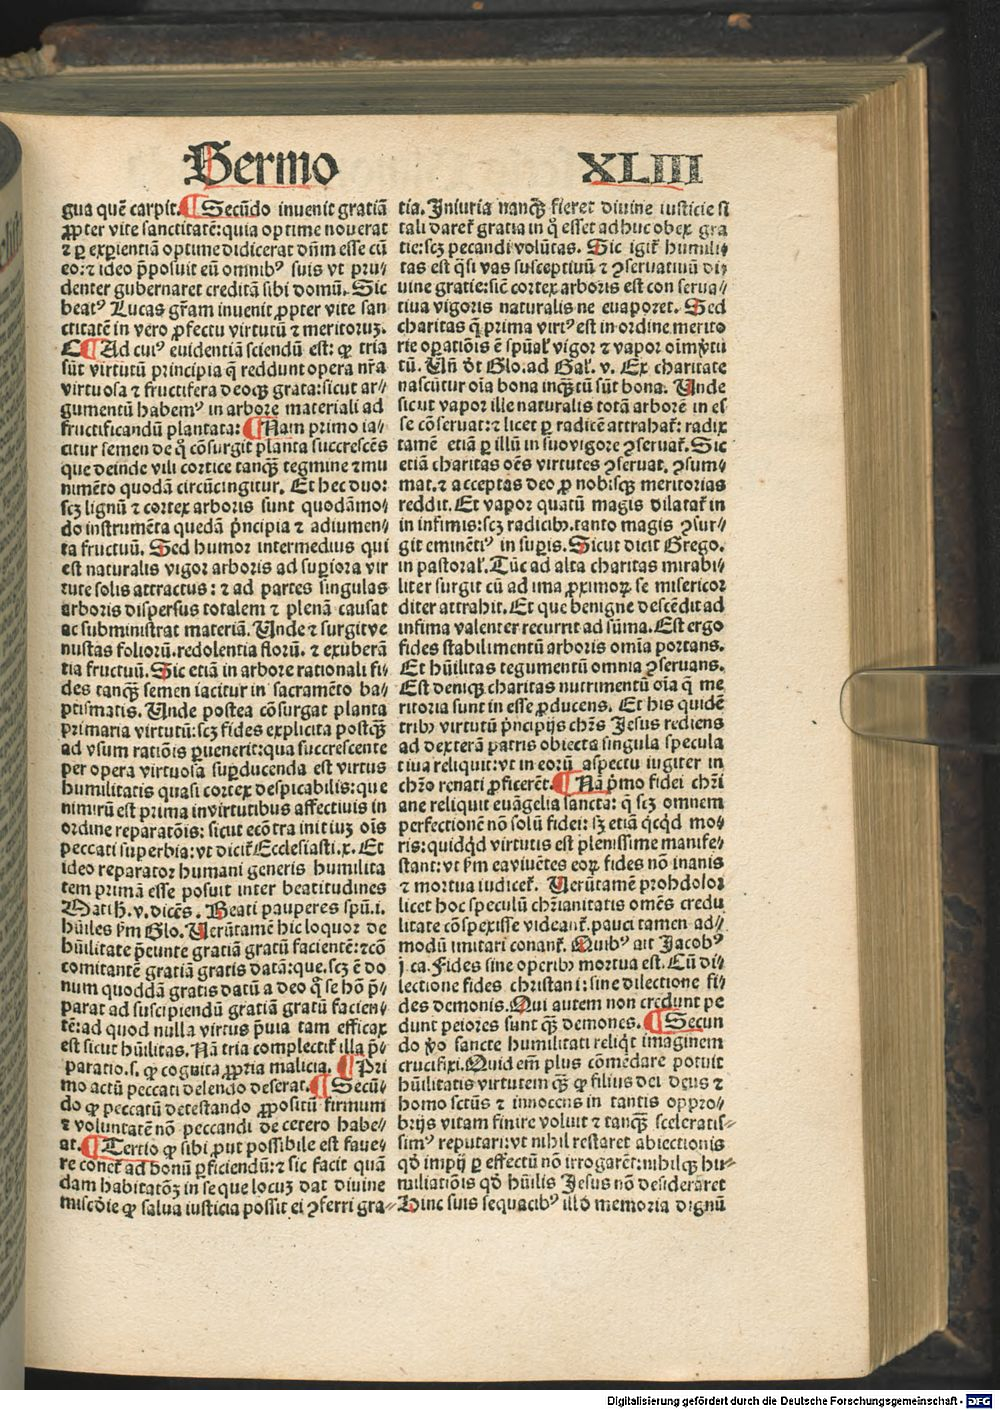 Sermo XLIII
gua quē carpit. ¶ Secūdo inuenit gratiā
ꝓpter vite sanctitatē: quia optime nouerat
⁊ ꝑ exꝑientiā optime didicerat dn̄m esse cū
eo: ⁊ ideo p̄posuit eū omnibꝰ suis vt pru⸗
denter gubernaret creditā sibi domū. Sic
beatꝰ Lucas gr̄am inuenit ꝓpter vite san
ctitatē in vero ꝓfectu virtutū ⁊ meritoruꝫ.
C ¶ Ad cuiꝰ euidentiā sciendū est: ꝙ tria
sūt virtutū principia q̄ reddunt opera nr̄a
virtuosa ⁊ fructifera deoqꝫ grata: sicut ar⸗
gumentū habemꝰ in arbore materiali ad
fructificandū plantata: ¶ Nam primo ia⸗
citur semen de q̊ cōsurgit planta succrescēs
que deinde vili cortice tanqꝫ̄ tegmine ⁊ mu
nimēto quodā circūcingitur. Et hec duo:
scꝫ lignū ⁊ cortex arboris sunt quodāmo⸗
do instrumēta quedā p̄ncipia ⁊ adiumen⸗
ta fructuū. Sed humor intermedius qui
est naturalis vigor arboris ad suꝑiora vir
tute solis attractus: ⁊ ad partes singulas
arboris dispersus totalem ⁊ plenā causat
ac subministrat materiā. Unde ⁊ surgit ve
nustas foliorū. redolentia florū. ⁊ exuberā
tia fructuū. Sic etiā in arbore rationali fi⸗
des tanqꝫ̄ semen iacitur in sacramēto ba⸗
ptismatis. Unde postea cōsurgat planta
primaria virtutū: scꝫ fides explicita postqꝫ̄
ad vsum ratiōis ꝑuenerit: qua succrescente
per opera virtuosa suꝑducenda est virtus
humilitatis quasi cortex despicabilis: que
nimirū est prima in virtutibus affectiuis in
ordine reparatōis: sicut ecōtra initiuꝫ oīs
peccati superbia: vt dicit᷑ Ecclesiasti. x. Et
ideo reparator humani generis humilita
tem primā esse posuit inter beatitudines
Math. v. dicēs. Beati pauperes spū. i.
hūiles ẜm Glo. Uerūtamē hic loquor de
hūilitate p̄eunte gratiā gratū facientē: ⁊ cō
comitantē gratiā gratis datā: que. scꝫ ē do
num quoddā gratis datū a deo q̊ se hō p̄⸗
parat ad suscipiendū gratiā gratū facien⸗
tē: ad quod nulla virtus p̄uia tam efficax
est sicut hūilitas. Nā tria complectit᷑ illa p̄⸗
paratio. s. ꝙ cognita ꝓpria malicia. ¶ Pri
mo actū peccati delendo deserat. ¶ Secū⸗
do ꝙ peccatū detestando ꝓpositū firmum
⁊ voluntatē nō peccandi de cetero habe⸗
at. ¶ Tertio ꝙ sibi ꝓut possibile est faue⸗
re conet᷑ ad bonū ꝑficiendū: ⁊ sic facit quā
dam habitatōꝫ in se que locuꝫ dat diuine
miscd̄ie ꝙ salua iusticia possit ei ꝯferri gra⸗
tia. Iniuria nanqꝫ̄ fieret diuine iusticie si
tali daret᷑ gratia in q̊ esset adhuc obex gra
tie: scꝫ peccandi volūtas. Sic igit᷑ humili⸗
tas est q̄si vas susceptiuū ⁊ ꝯseruatiuū di⸗
uine gratie: sicē cortex arboris est conserua⸗
tiua vigoris naturalis ne euaporet. Sed
charitas q̄ prima virtꝰ est in ordine merito
rie oꝑatiōis ē sp̄ual᷑ vigor ⁊ vapor oīm v̓tu
tū. Un̄ d̓t Glo. ad Gal᷑. v. Ex charitate
nascūtur oīa bona inqꝫ̄tū sūt bona. Unde
sicut vapor ille naturalis totā arborē in es⸗
se cōseruat: ⁊ licet ꝑ radicē attrahat᷑: radix
tamē etiā ꝑ illū in suo vigore ꝯseruat᷑. Sic
etiā charitas oēs virtutes ꝯseruat. ꝯsum⸗
mat. ⁊ acceptas deo ꝓ nobisqꝫ meritorias
reddit. Et vapor quātū magis dilatat᷑ in
in infimis: scꝫ radicibꝫ. tanto magis ꝯsur⸗
git eminētiꝰ in suꝑis. Sicut dicit Grego.
in pastoral᷑. Tūc ad alta charitas mirabi⸗
liter surgit cū ad ima ꝓximoꝝ se misericor
diter attrahit. Et que benigne descēdit ad
infima valenter recurrit ad sūma. Est ergo
fides stabilimentū arboris omīa portans.
Et hūilitas tegumentū omnia ꝯseruans.
Est deniqꝫ charitas nutrimentū oīa q̄ me
ritoria sunt in esse ꝓducens. Et his quidē
tribꝫ virtutū p̄ncipijs chr̄s Jesus rediens
ad dexterā patris obiecta singula specula
tiua reliquit: vt in eorū aspectu iugiter in
chr̄o renati ꝓficerēt. ¶ Nā p̓mo fidei chr̄i
ane reliquit euāgelia sancta: q̄ scꝫ omnem
perfectionē nō solū fidei: sꝫ etiā q̓cq̓d mo⸗
ris: quidq̓d virtutis est plenissime manife⸗
stant: vt ẜm ea viuētes eoꝝ fides nō inanis
⁊ mortua iudicet᷑. Uerūtamē prohdolor
licet hoc speculū chr̄ianitatis omēs credu
litate cōspexisse videant᷑. pauci tamen ad⸗
modū imitari conant᷑. Quibꝰ ait Jacobꝰ
j. ca. Fides sine operibꝫ mortua est. Cū di⸗
lectione fides christiani: sine dilectione fi⸗
des demonis. Qui autem non credunt pe
dunt peiores sunt qꝫ̄ demones. ¶ Secun
do v̊o sancte humilitati reliq̓t imaginem
crucifixi. Quid em̄ plus cōmēdare potuit
hūilitatis virtutem qꝫ̄ ꝙ filius dei deus ⁊
homo sctūs ⁊ innocens in tantis oppro⸗
brijs vitam finire voluit ⁊ tanqꝫ̄ sceleratis⸗
simꝰ reputari: vt nihil restaret abiectionis
qd̓ impij ꝑ effectū nō irrogarēt: nihilqꝫ hu⸗
miliatiōis qd̓ hūilis Jesus nō desideraret
Hinc suis sequacibꝰ illd̓ memoria dignū
Digitalisierung gefördert durch die Deutsche Forschungsgemeinschaft - DFG